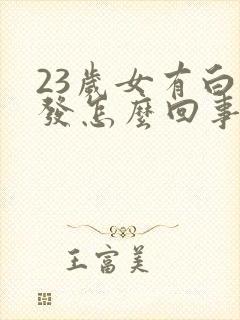 23歲女有白
發怎麼回事
王富美